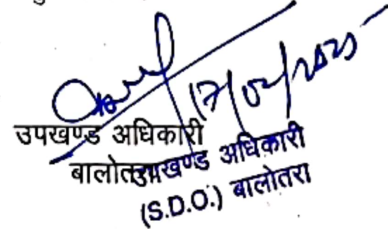 17/02/2025
उपखण्ड अधिकारी
बालोतरा
उपखण्ड अधिकारी
(S.D.O.) बालोतरा